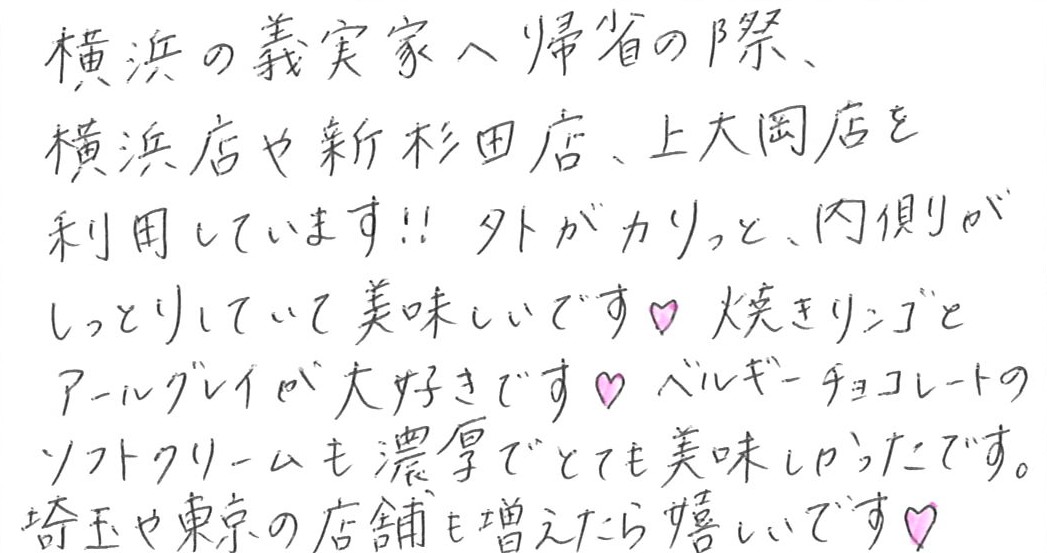 横浜の義実家へ帰省の際、
横浜店や新杉田店、上大岡店を
利用しています!! 外がカリっと、内側が
しっとりしていて美味しいです♡ 焼きリンゴと
アールグレイが大好きです♡ ベルギーチョコレートの
ソフトクリームも濃厚でとても美味しかったです。
埼玉や東京の店舗も増えたら嬉しいです♡